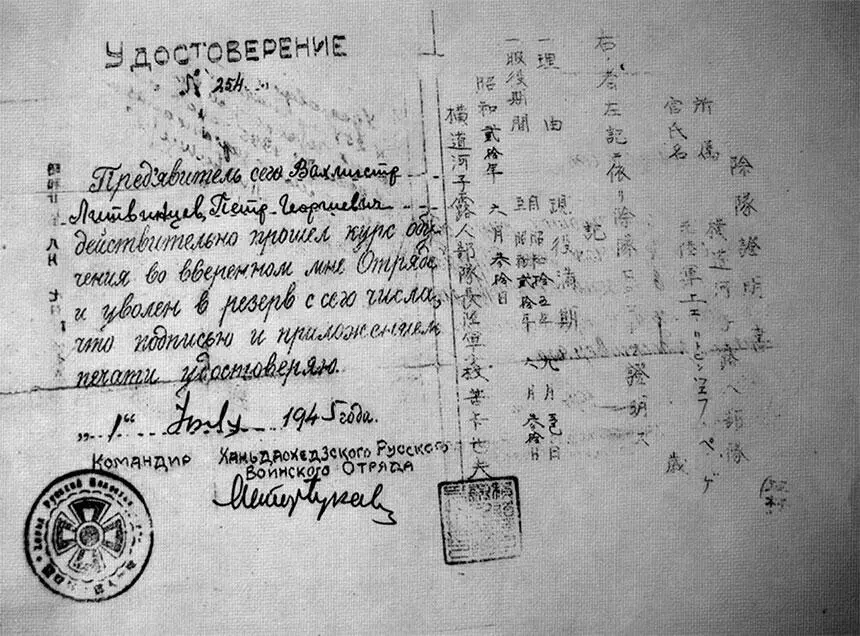 УДОСТОВЕРЕНИЕ
№ 254
Предъявитель сего Вахмистр
Литвинцев, Петр Георгиевич
действительно прошел курс обу-
чения во вверенном мне Отряде
и уволен в резерв с сего числа,
что подписью и приложением
печати удостоверяю.
„1“ 1945 года.
Командир Ханьдаохедзского Русского
Воинского Отряда
除隊證明書
所属 横道河子露人部隊
官氏名
右ノ者左記ニ依リ除隊 證明ス
記
一理由 現役滿期
一服役期間 自昭和拾五年 月 日
至昭和貳拾年六月參拾日
昭和貳拾年六月參拾日
横道河子露人部隊長陸軍少校